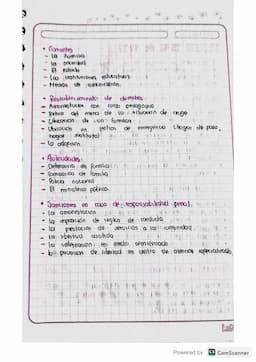 • Garantes
- La familia
- La sociedad
- El estado
- Las instituciones educativas
- Medios de comunicación.
• Restablecimiento de derechos
- Amonestación con curso pedagógico
- Retiro del menor de su situación de riesgo
- Ubicación de una familia
- Ubicación en centros de emergencia (hogar de paso,
hogar sustituto)
- La adopción.
• Autoridades:
- Defensoría de familia
- Comisaría de familia
- Policía nacional
- El ministerio público.
• Sanciones en caso de responsabilidad penal.
- La amonestación
- La imposición de reglas de conducta
- La prestación de servicios a la comunidad
- La libertad asistida
- La internación en medio semicerrado
- La privación de libertad en centro de atención especializada.
Powered by CamScanner